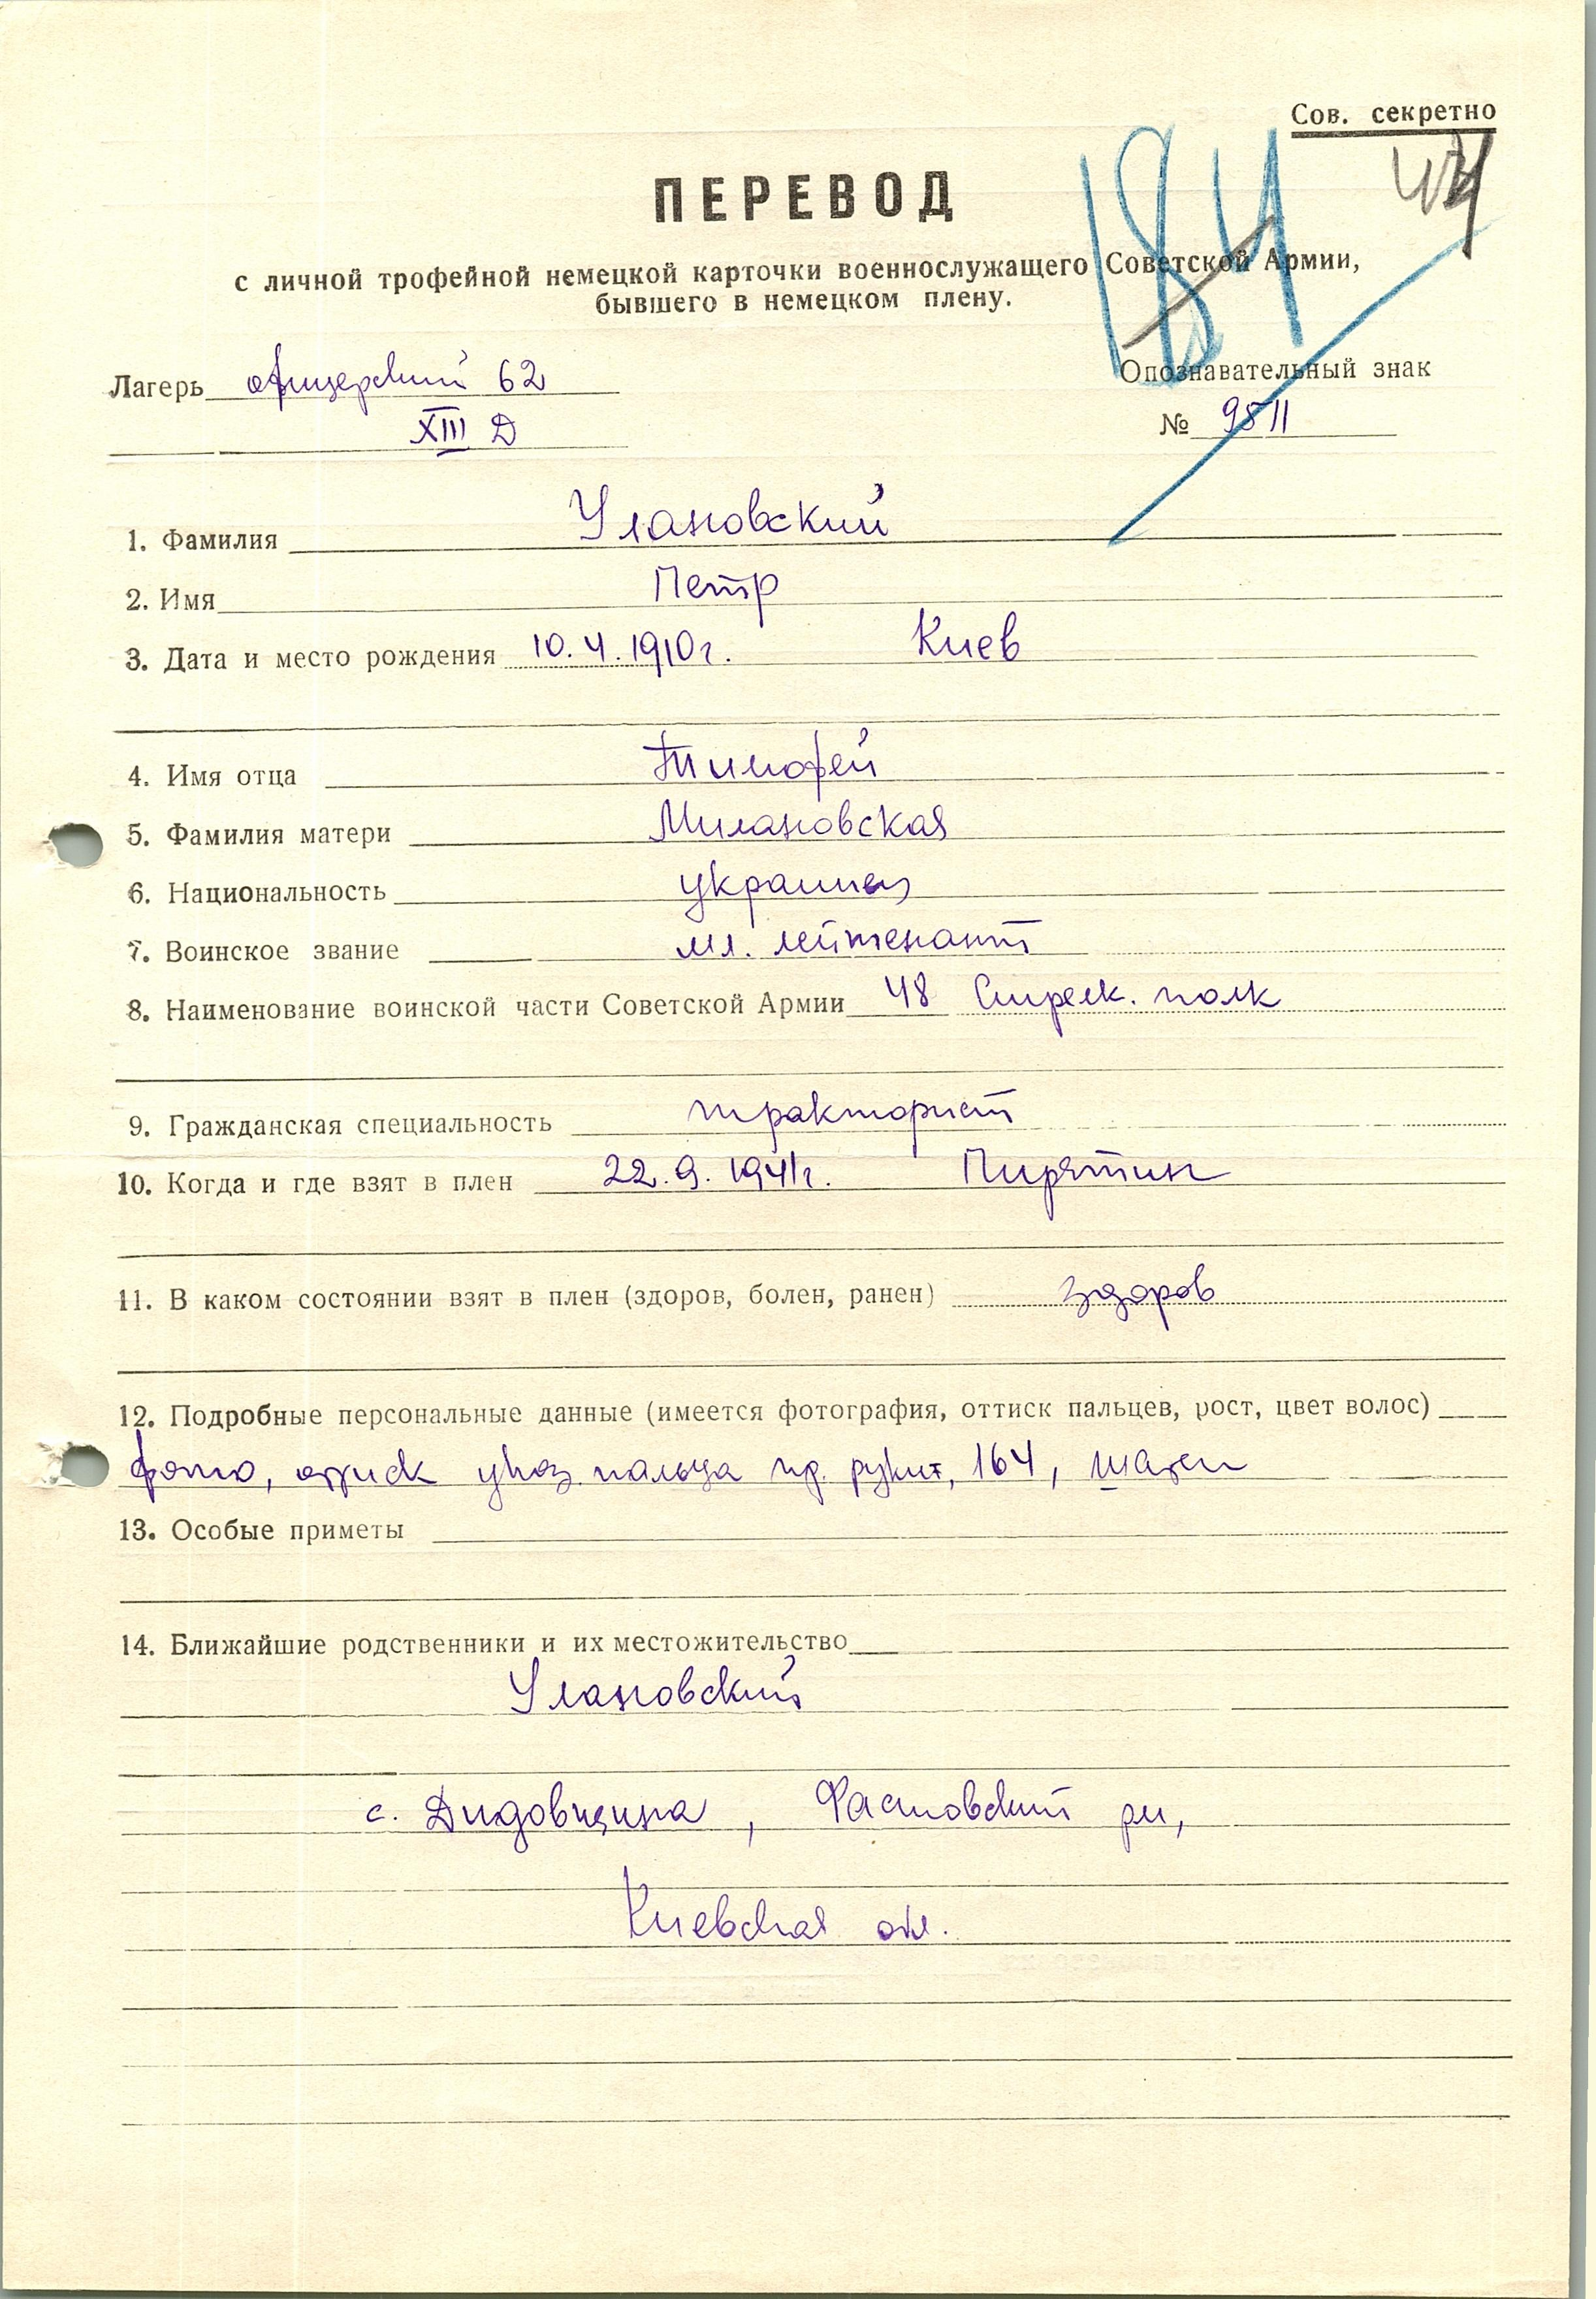 Сов. секретно
184
ПЕРЕВОД
с личной трофейной немецкой карточки военнослужащего Советской Армии,
бывшего в немецком плену.
Лагерь офицерский 62
XIII Д
Опознавательный знак
№ 9511
1. Фамилия Улановский
2. Имя Петр
3. Дата и место рождения 10.4.1910г. Киев
4. Имя отца Тимофей
5. Фамилия матери Милановская
6. Национальность украинец
7. Воинское звание мл. лейтенант
8. Наименование воинской части Советской Армии 48 Стрелк. полк
9. Гражданская специальность тракторист
10. Когда и где взят в плен 22.9.1941г. Пирятин
11. В каком состоянии взят в плен (здоров, болен, ранен) здоров
12. Подробные персональные данные (имеется фотография, оттиск пальцев, рост, цвет волос)
фото, оттиск указ. пальца пр. руки, 164, шатен
13. Особые приметы
14. Ближайшие родственники и их местожительство
Улановский
с. Дидовщина, Фастовский рн,
Киевская обл.